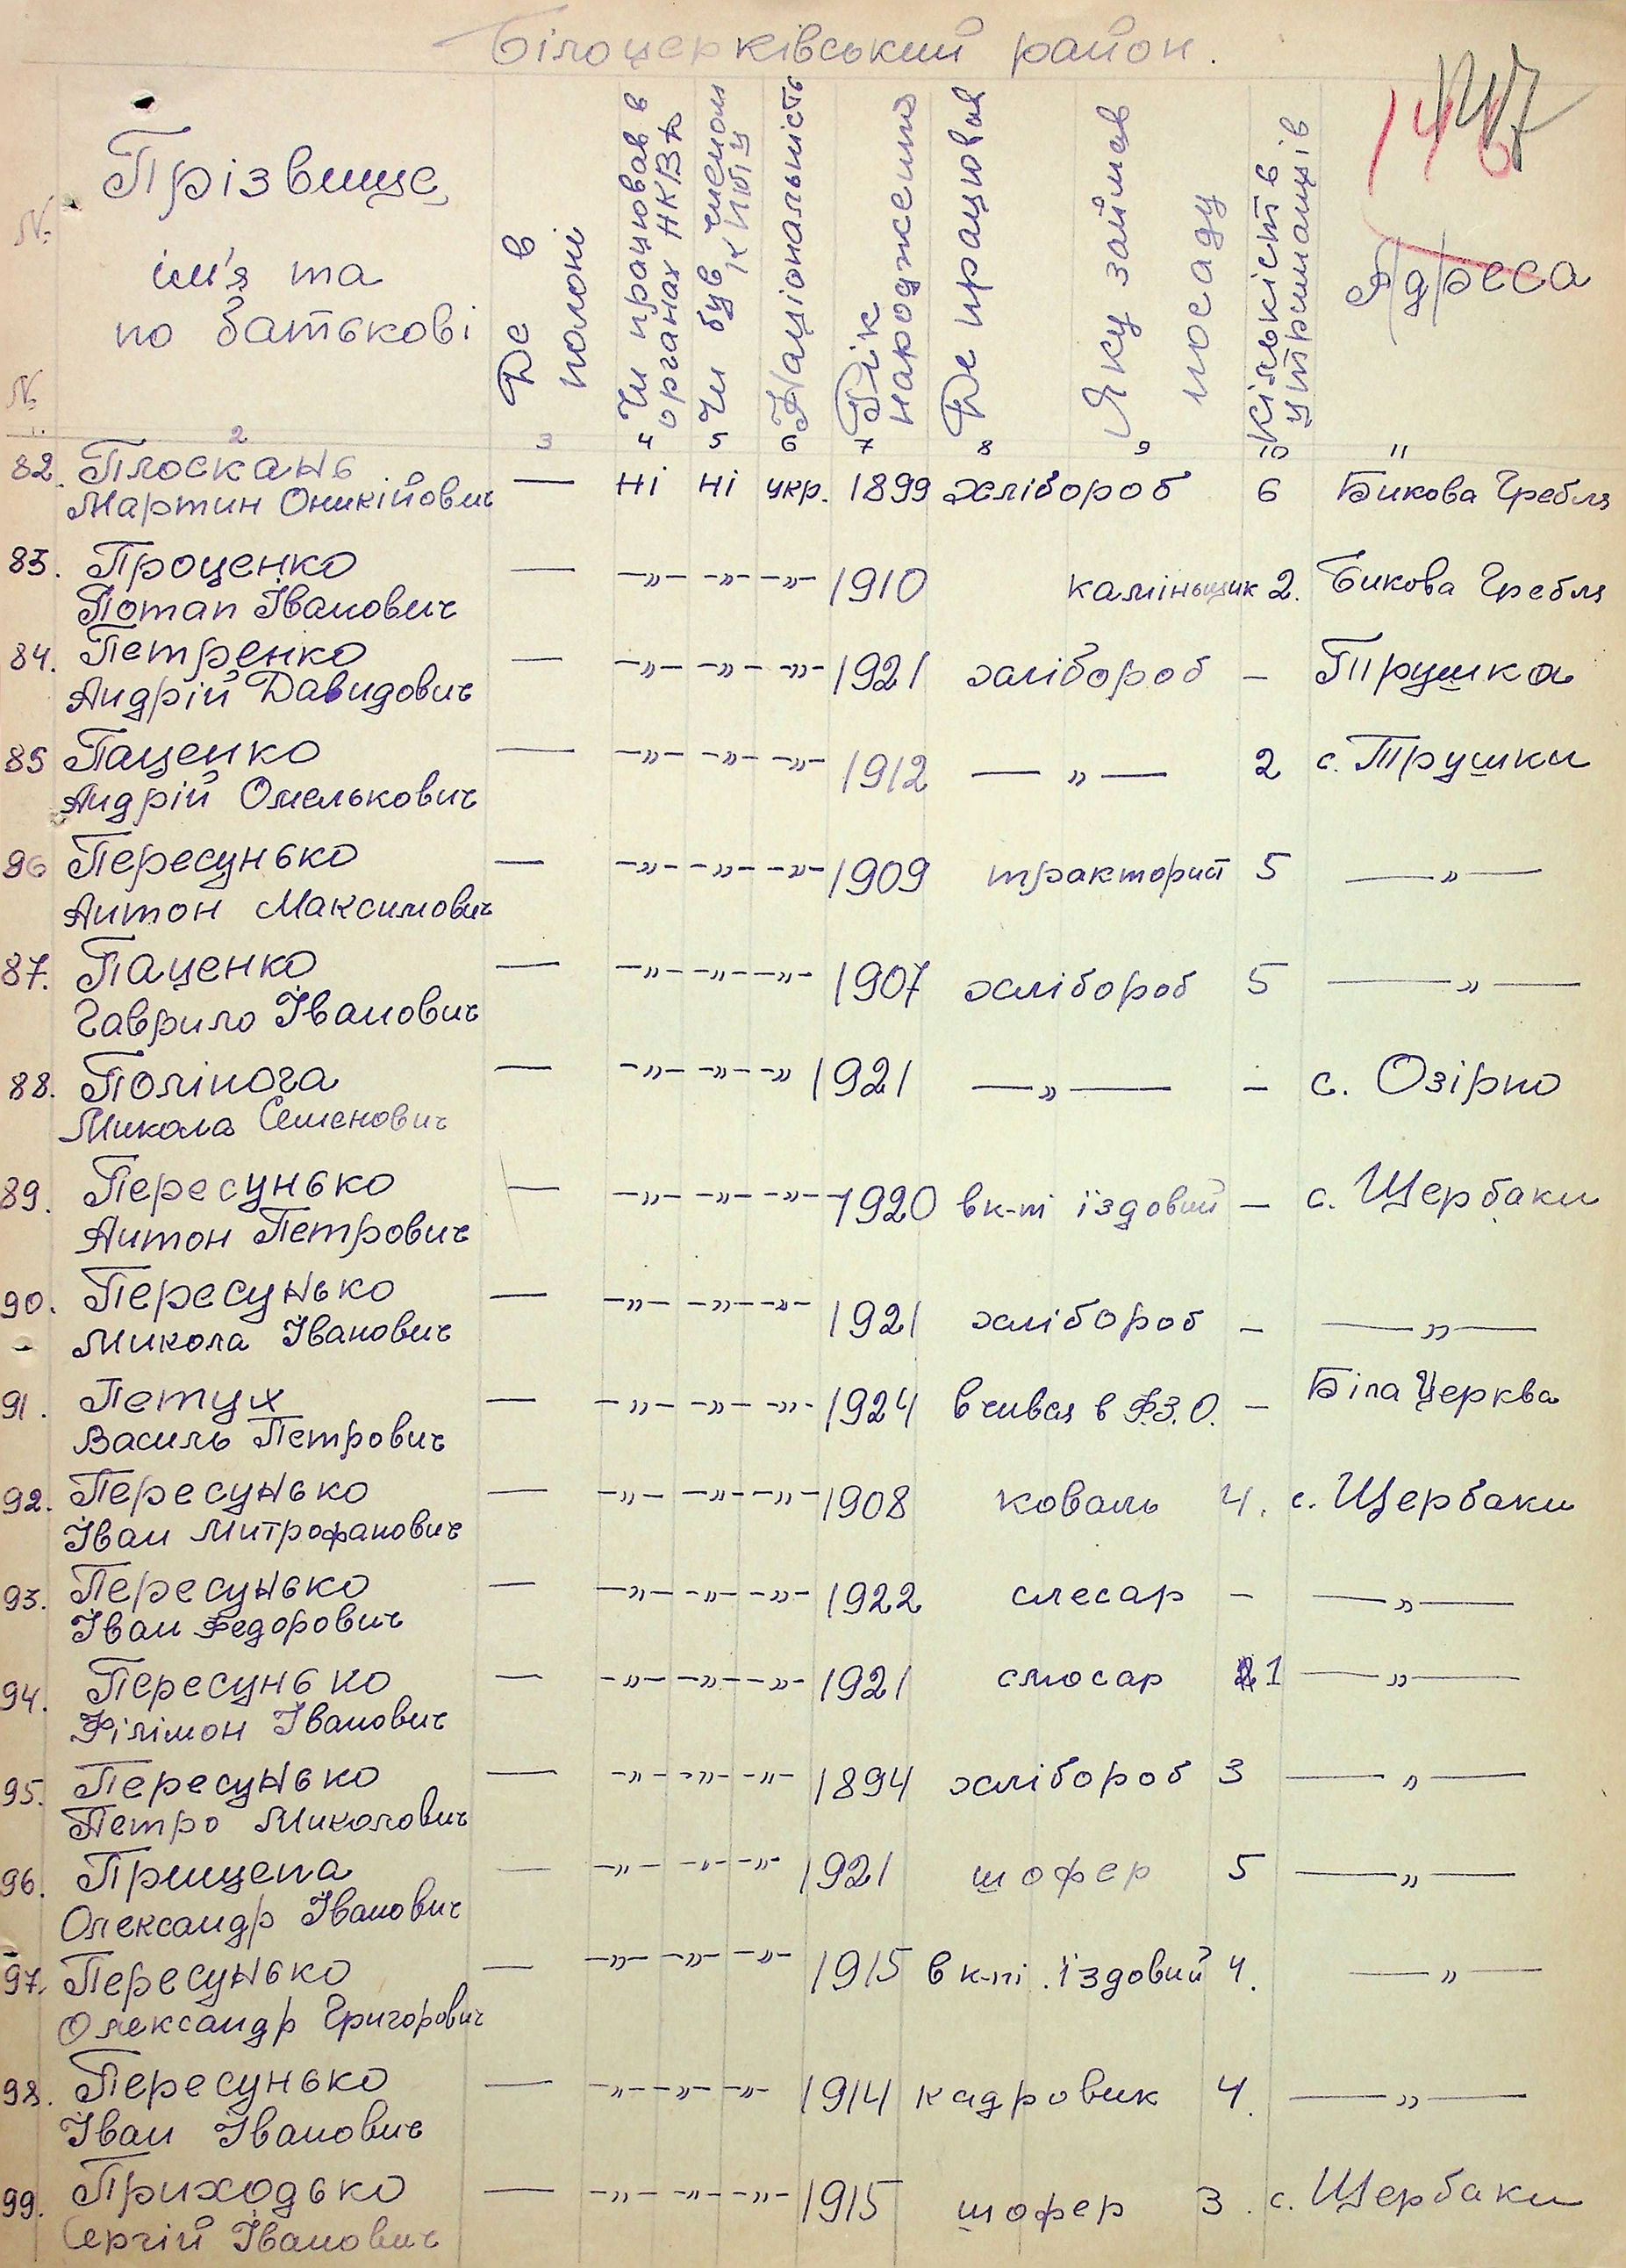 Білоцерківський район.
147
146
№
№
Прізвище
ім'я та
по батькові
Де в полоні
Чи працював в органах НКВД
Чи був членом КП(б)У
Національність
Рік народження
Де працював
Яку займав посаду
Кількість утриманців
Адреса
1. 2 3 4 5 6 7 8 9 10 11
82. Плоскань
Мартин Оникійович — ні ні укр. 1899 хлібороб 6 Бикова Гребля
83. Проценко
Потап Іванович — —"— —"— —"— 1910 каміньщик 2. Бикова Гребля
84. Петренко
Андрій Давидович — —"— —"— —"— 1921 хлібороб – Трушка
85 Паценко
Андрій Омелькович — —"— —"— —"— 1912 —"— 2 с. Трушки
86 Пересунько
Антон Максимович — —"— —"— —"— 1909 тракторист 5 —"—
87. Паценко
Гаврило Іванович — —"— —"— —"— 1907 хлібороб 5 —"—
88. Полінога
Микола Семенович — —"— —"— —" 1921 —"— – с. Озірно
89. Пересунько
Антон Петрович — —"— —"— —"— 1920 в к-пі їздовий – с. Щербаки
90. Пересунько
Микола Іванович — —"— —"— —"— 1921 хлібороб – —"—
91. Петух
Василь Петрович — —"— —"— —"— 1924 вчився в Ф.З.О. – Біла Церква
92. Пересунько
Іван Митрофанович — —"— —"— —"— 1908 коваль 4. с. Щербаки
93. Пересунько
Іван Федорович — —"— —"— —"— 1922 слесар – —"—
94. Пересунько
Філімон Іванович — —"— —"— —"— 1921 слюсар 1 —"—
95. Пересунько
Петро Миколович — —"— —"— —"— 1894 хлібороб 3 —"—
96. Прищепа
Олександр Іванович — —"— —"— —"— 1921 шофер 5 —"—
97. Пересунько
Олександр Григорович — —"— —"— —"— 1915 в к-пі їздовий 4. —"—
98. Пересунько
Іван Іванович — —"— —"— —"— 1914 кадровик 4. —"—
99. Приходько
Сергій Іванович — —"— —"— —"— 1915 шофер 3. с. Щербаки